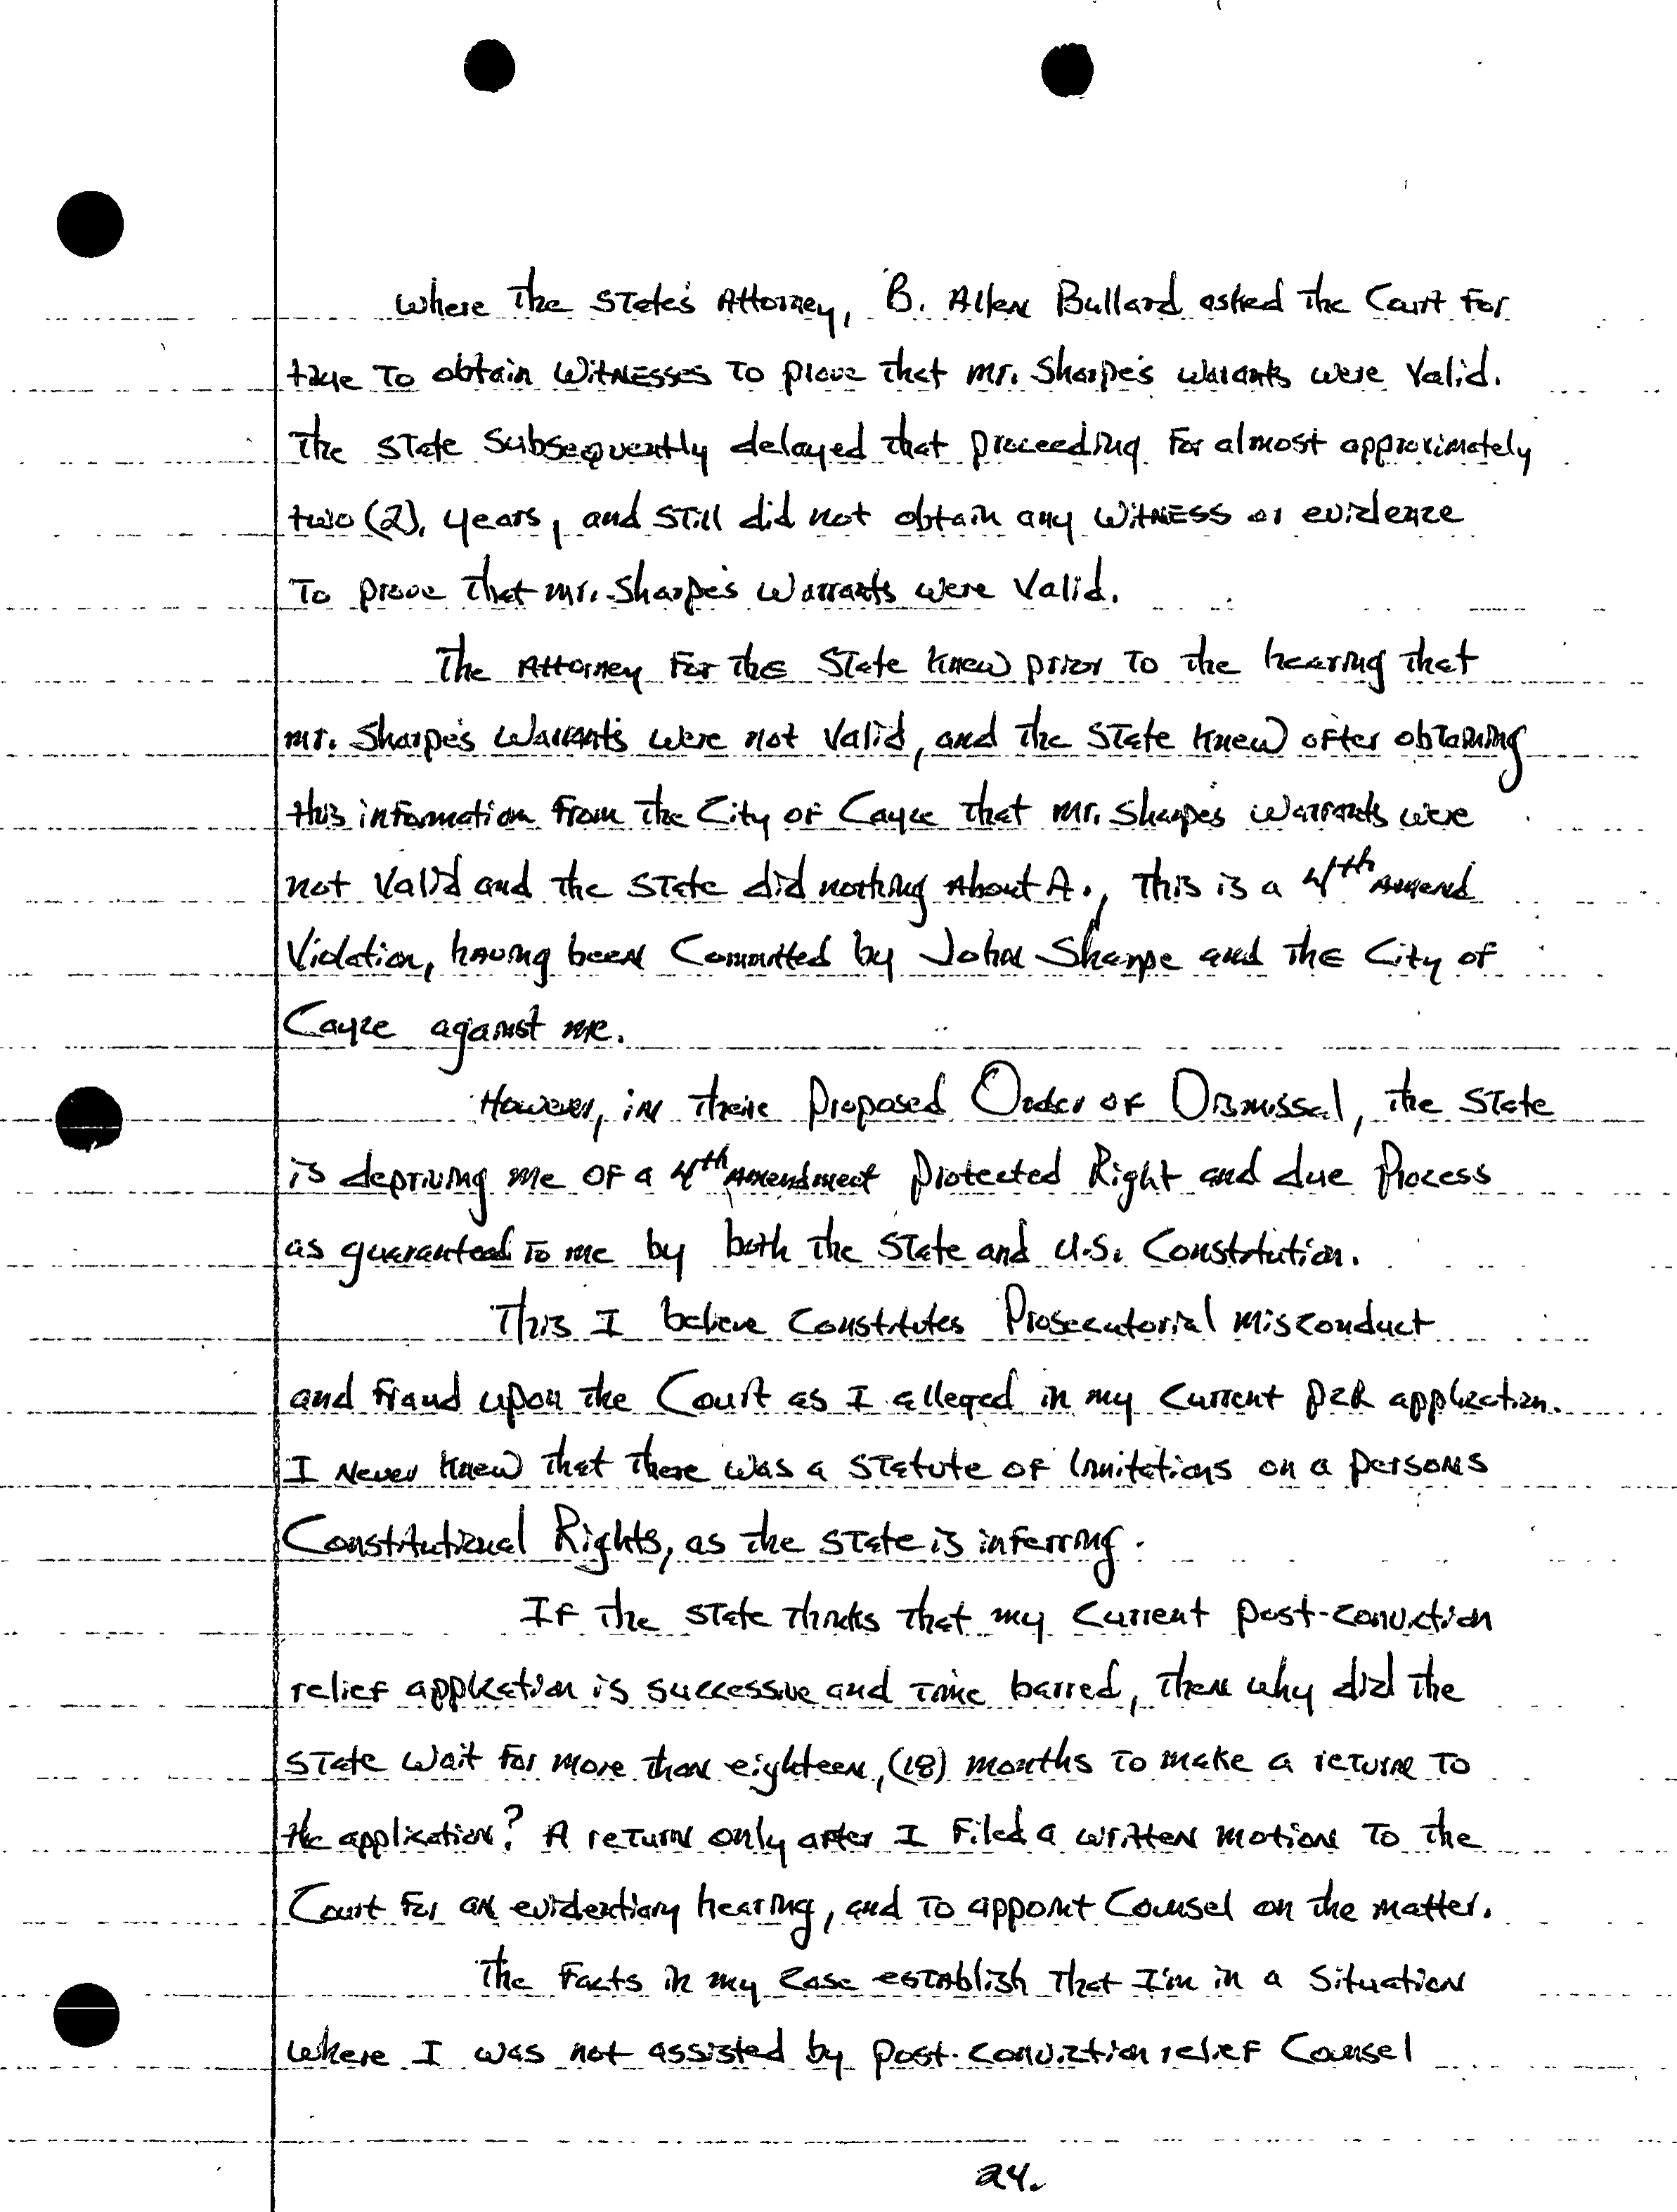 where the State's Attorney, B. Allen Bullard asked the Court for
time To obtain WitNESSES To prove that mr. Sharpe's warants were Valid.
The State Subsequently delayed that proceeding for almost approximately
two (2), years, and still did not obtain any WitNESS or evidence
To prove that mr. Sharpe's Warrants were Valid.
The Attorney For the State knew prior To the hearing that
mr. Sharpe's Warrants were not Valid, and the State knew after obtaining
this information from the City of Cayce that mr. Sharpe's Warrants were
not Valid and the State did nothing About it., This is a 4th Amend
Violation, having been Committed by John Sharpe and the City of
Cayce against me.
However, in their Proposed Order of Dismissal, the State
is depriving me of a 4th Amendment protected Right and due Process
as guaranteed To me by both the State and U.S. Constitution.
This I believe Constitutes Prosecutorial misconduct
and fraud upon the Court as I alleged in my current PCR application.
I Never knew that there was a statute of limitations on a persons
Constitutional Rights, as the State is inferring.
If the State thinks that my Current post-conviction
relief application is successive and time barred, then why did the
State wait for more than eighteen, (18) months To make a return To
the application? A return only after I filed a written motion To the
Court for an evidentiary hearing, and To appoint Counsel on the matter.
The Facts in my case establish that I'm in a Situation
where I was not assisted by post-conviction relief Counsel
24.